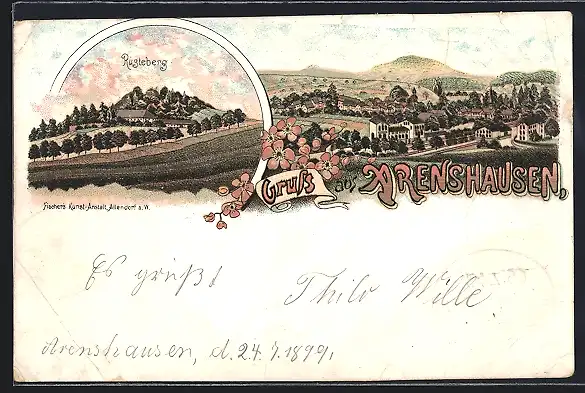 Rusteberg
Gruß aus ARENSHAUSEN,
Fischer's Kunst-Anstalt, Allendorf a. W.
Es grüßt
Thilo Wille
Arenshausen, d. 24.7.1899.